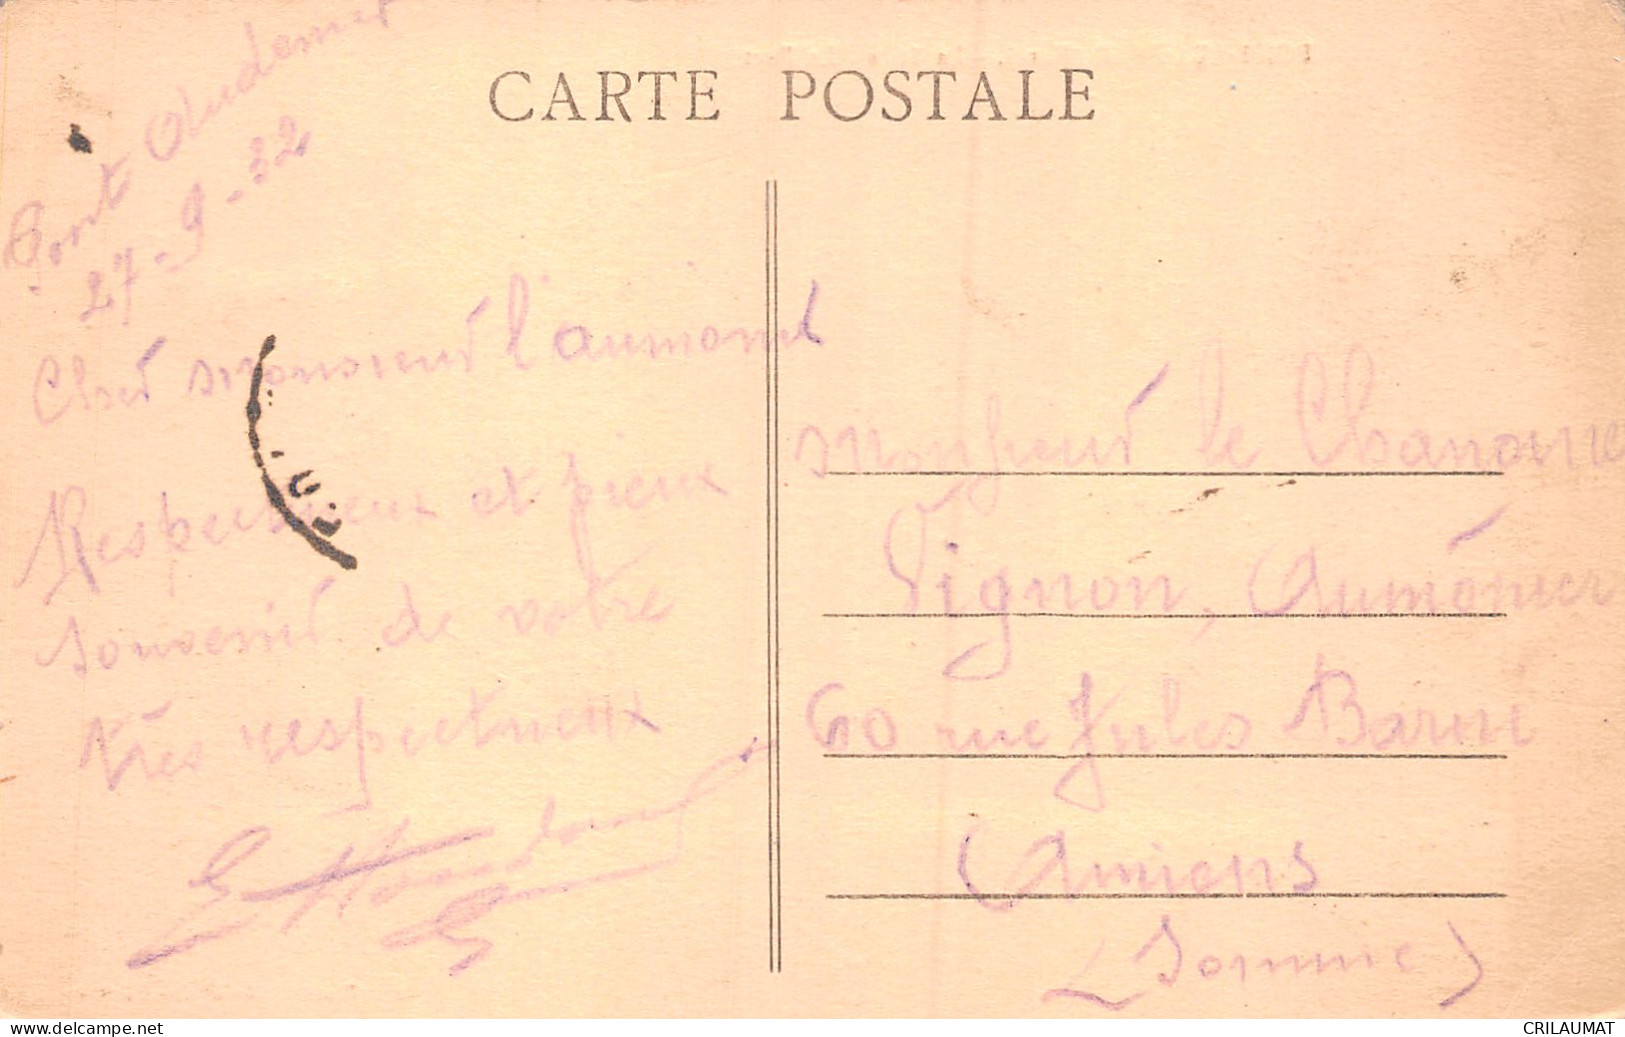 CARTE POSTALE
Pont Audemer
27-9-32
Cher monsieur l'aumonier
Respectueux et pieux
souvenir de votre
très respectueux
Monsieur le Chanoine
Vignon, Aumônier
60 rue Jules Barni
Amiens
(Somme)
www.delcampe.net
CRILAUMAT